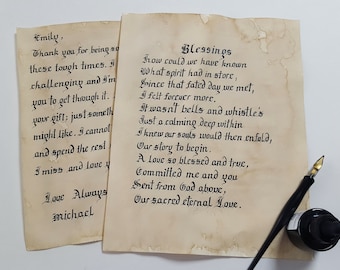 Emily,
Thank you for being so
these tough times. I
challenging and I'm
you to get though it.
your gift; just someth
might like. I cannot
and spend the rest
I miss and love y
Love Always
Michael
Blessings
How could we have known
What spirit had in store,
Since that fated day we met,
I felt forever more.
It wasn't bells and whistle's
Just a calming deep within
I knew our souls would then enfold,
Our story to begin.
A love so blessed and true,
Committed me and you
Sent from God above,
Our sacred eternal Love.